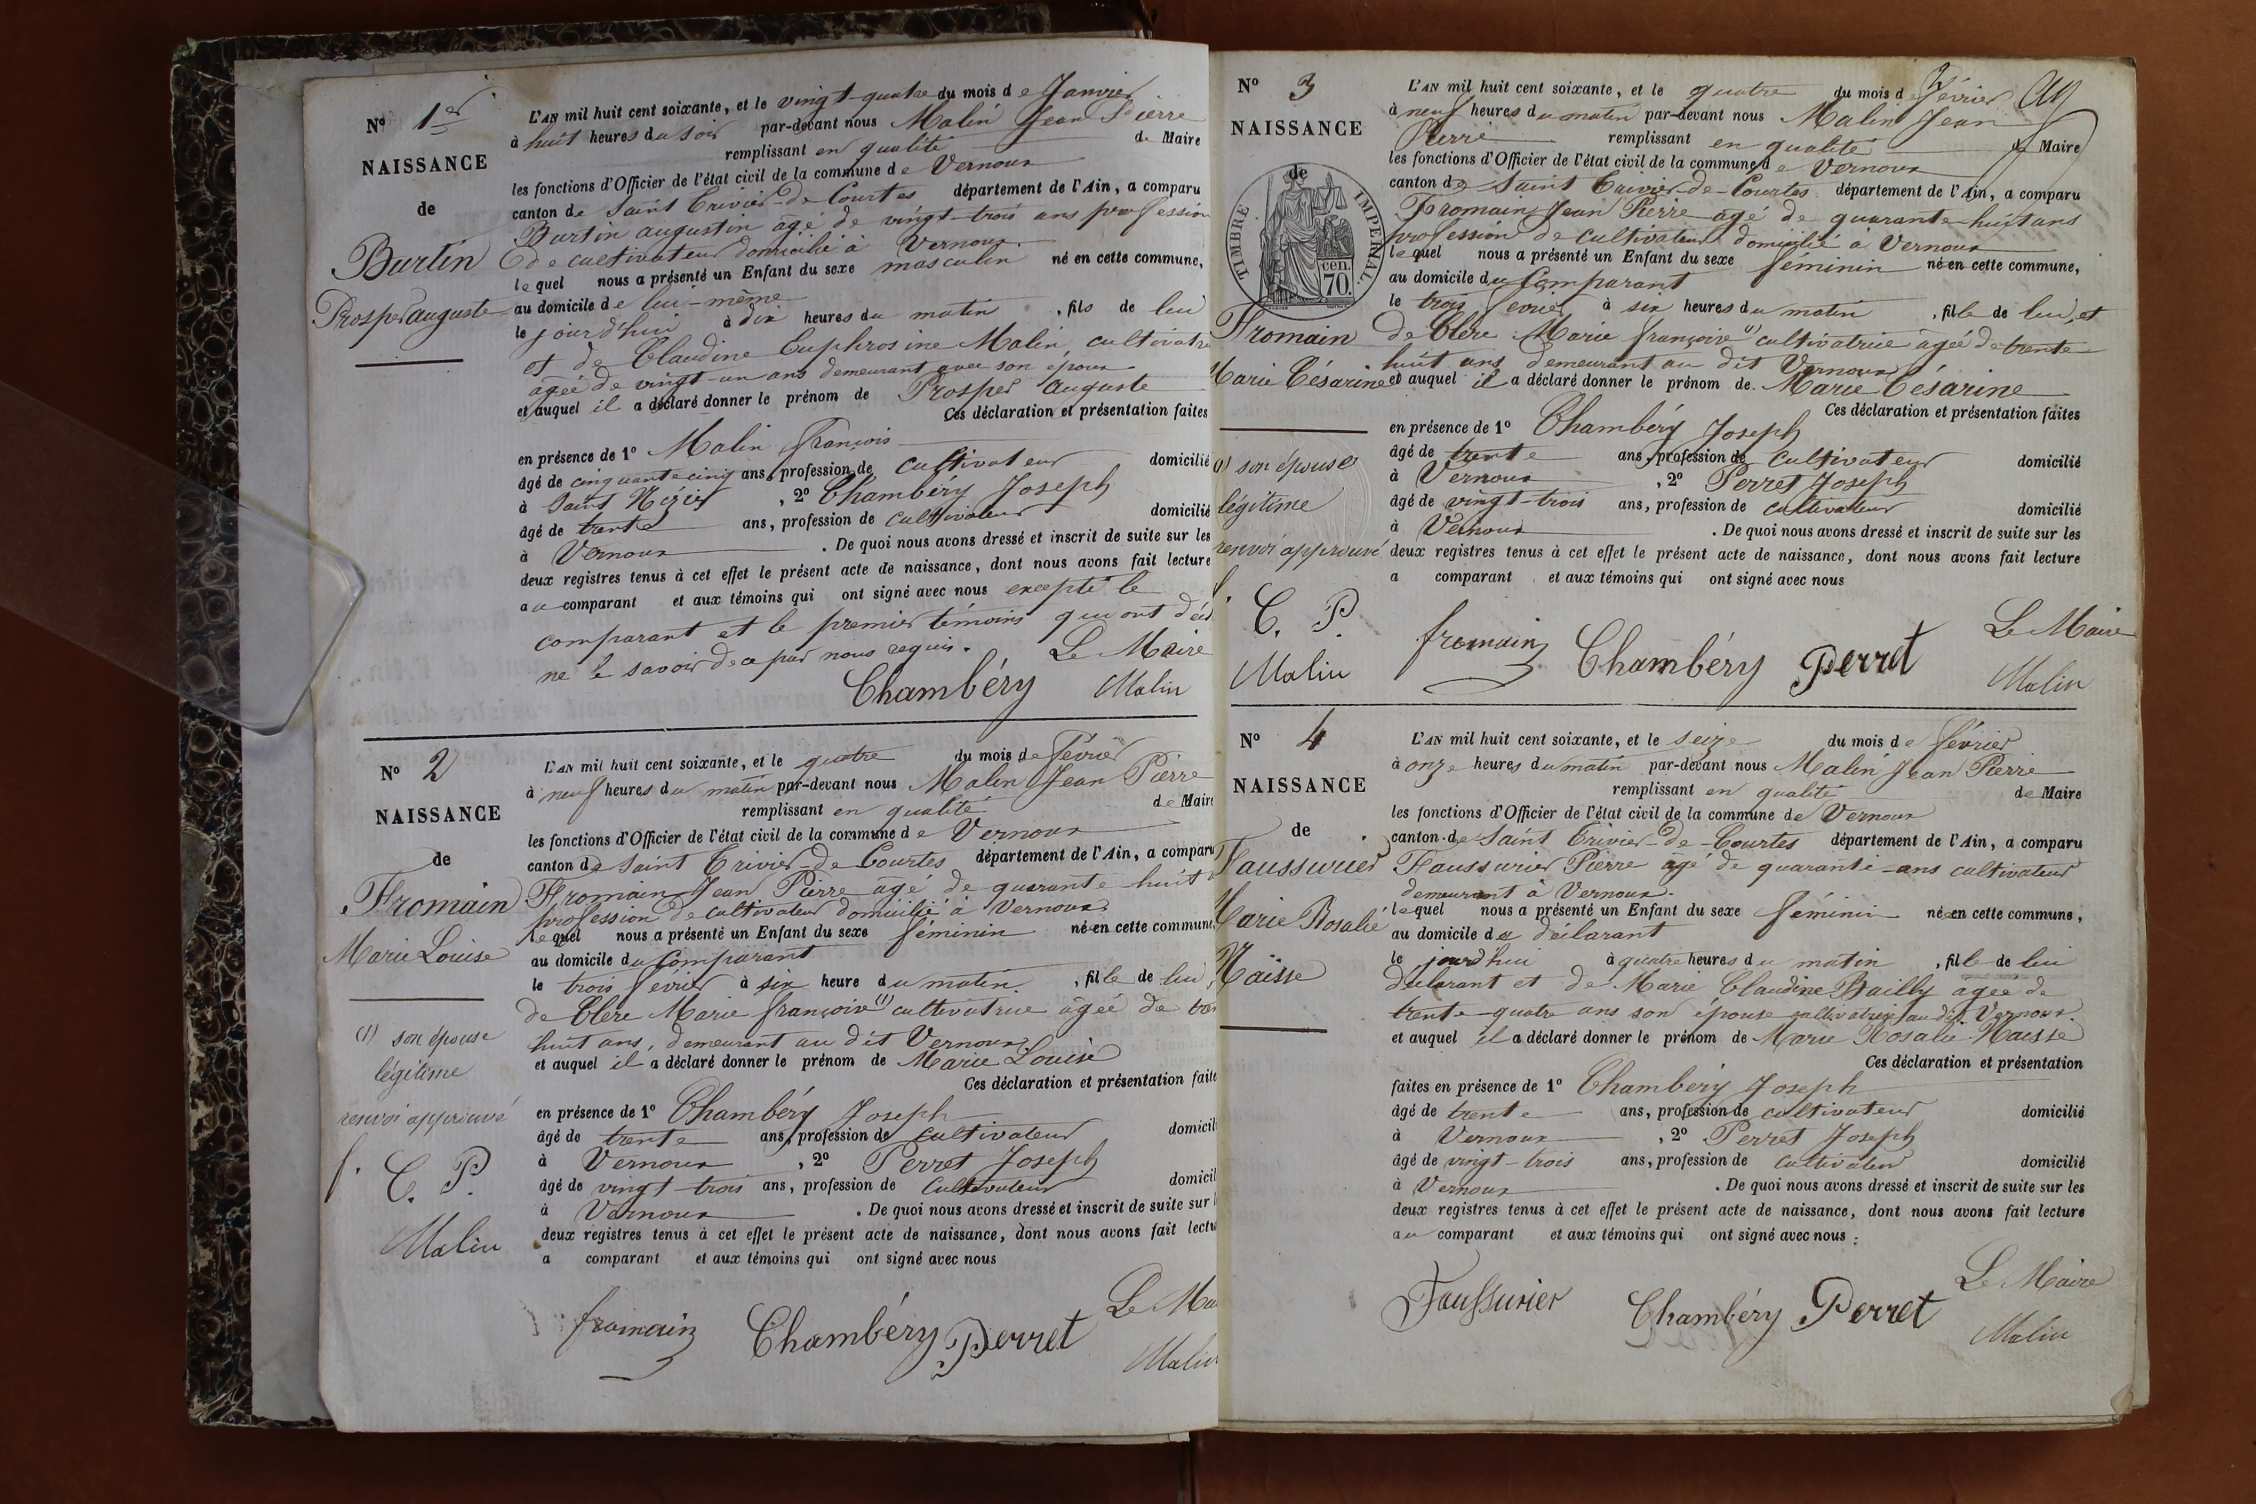 N° 1er
NAISSANCE
de
Burtin
Prosper auguste
L'AN mil huit cent soixante, et le vingt-quatre du mois de Janvier
à huit heures du soir par-devant nous Malin Jean Pierre
remplissant en qualité de Maire
les fonctions d'Officier de l'état civil de la commune de Vernoux
canton de Saint Trivier-de Courtes département de l'Ain, a comparu
Burtin augustin âgé de vingt-trois ans profession
de cultivateur domicilié à Vernoux.
lequel nous a présenté un Enfant du sexe masculin né en cette commune,
au domicile de lui-même
le jourd'hui à dix heures du matin, fils de lui
et de Claudine Euphrosine Malin, cultivatrice
âgée de vingt-un ans demeurant avec son époux
et auquel il a déclaré donner le prénom de Prosper auguste
Ces déclaration et présentation faites
en présence de 1° Malin françois
âgé de cinquante cinq ans, profession de cultivateur domicilié
à Saint Nizier, 2° Chambéry Joseph
âgé de trente ans, profession de cultivateur domicilié
à Vernoux. De quoi nous avons dressé et inscrit de suite sur les
deux registres tenus à cet effet le présent acte de naissance, dont nous avons fait lecture
au comparant et aux témoins qui ont signé avec nous excepté le
comparant et le premier témoins qui ont
ne le savoir de ce par nous requis.
Le Maire
Chambéry Malin
N° 2
NAISSANCE
de
Fromain
Marie Louise
(1) son épouse
légitime
renvoi approuvé
f. C. P.
Malin
L'AN mil huit cent soixante, et le quatre du mois de Février
à neuf heures du matin par-devant nous Malin Jean Pierre
remplissant en qualité de Maire
les fonctions d'Officier de l'état civil de la commune de Vernoux
canton de Saint Trivier-de Courtes département de l'Ain, a comparu
Fromain Jean Pierre âgé de quarante-huit
profession de cultivateur domicilié à Vernoux.
lequel nous a présenté un Enfant du sexe féminin né en cette commune
au domicile du Comparant
le trois février à six heure du matin, fille de lui,
de Clere Marie françoise (1) cultivatrice âgée de
huit ans, demeurant au dit Vernoux
et auquel il a déclaré donner le prénom de Marie Louise
Ces déclaration et présentation faite
en présence de 1° Chambéry Joseph
âgé de trente ans, profession de cultivateur domicil
à Vernoux, 2° Perret Joseph
âgé de vingt-trois ans, profession de Cultivateur domicil
à Vernoux. De quoi nous avons dressé et inscrit de suite sur
deux registres tenus à cet effet le présent acte de naissance, dont nous avons fait lectu
a comparant et aux témoins qui ont signé avec nous
Le Ma
fromain Chambéry Perret
Malin
N° 3
NAISSANCE
de
TIMBRE IMPERIAL
cen.
70.
Fromain
Marie Césarine
(1) son épouse
légitime
renvoi approuvé
f.
C. P.
Malin
L'AN mil huit cent soixante, et le quatre du mois de février
à neuf heures du matin par-devant nous Malin Jean
Pierre remplissant en qualité de Maire
les fonctions d'Officier de l'état civil de la commune de Vernoux
canton de Saint Trivier-de-Courtes département de l'Ain, a comparu
Fromain Jean Pierre âgé de quarante-huit ans
profession de cultivateur domicilié à Vernoux
lequel nous a présenté un Enfant du sexe féminin né en cette commune,
au domicile du Comparant
le trois février à six heures du matin, fille de lui, et
de Clere Marie françoise (1) cultivatrice âgée de trente
huit ans demeurant au dit Vernoux
et auquel il a déclaré donner le prénom de Marie Césarine
Ces déclaration et présentation faites
en présence de 1° Chambéry Joseph
âgé de trente ans, profession de cultivateur domicilié
à Vernoux, 2° Perret Joseph
âgé de vingt-trois ans, profession de cultivateur domicilié
à Vernoux. De quoi nous avons dressé et inscrit de suite sur les
deux registres tenus à cet effet le présent acte de naissance, dont nous avons fait lecture
a comparant et aux témoins qui ont signé avec nous
Le Maire
fromain Chambéry Perret
Malin
N° 4
NAISSANCE
de
Faussurier
Marie Rosalie
Naisse
L'AN mil huit cent soixante, et le seize du mois de février
à onze heures du matin par-devant nous Malin Jean Pierre
remplissant en qualité de Maire
les fonctions d'Officier de l'état civil de la commune de Vernoux
canton de Saint Trivier-de-Courtes département de l'Ain, a comparu
Faussurier Pierre âgé de quarante-ans cultivateur
demeurant à Vernoux.
lequel nous a présenté un Enfant du sexe féminin né en cette commune,
au domicile du déclarant
le jourd'hui à quatre heures du matin, fille de lui
déclarant et de Marie Claudine Bailly âgée de
trente-quatre ans son épouse cultivatrice au dit Vernoux.
et auquel il a déclaré donner le prénom de Marie Rosalie Naisse
Ces déclaration et présentation
faites en présence de 1° Chambéry Joseph
âgé de trente ans, profession de cultivateur domicilié
à Vernoux, 2° Perret Joseph
âgé de vingt-trois ans, profession de cultivateur domicilié
à Vernoux. De quoi nous avons dressé et inscrit de suite sur les
deux registres tenus à cet effet le présent acte de naissance, dont nous avons fait lecture
au comparant et aux témoins qui ont signé avec nous:
Le Maire
Faussurier Chambéry Perret
Malin